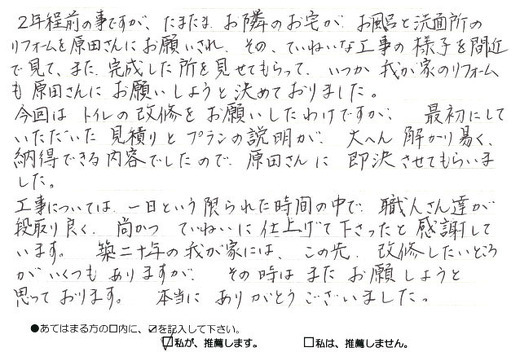 2年程前の事ですが、たまたま、お隣のお宅が、お風呂と洗面所の
リフォームを原田さんにお願いされ、その、ていねいな工事の様子を間近
で見て、また、完成した所を見せてもらって、いつか我が家のリフォーム
も原田さんにお願いしようと決めておりました。
今回はトイレの改修をお願いしたわけですが、最初にして
いただいた見積りとプランの説明が、大へん解かり易く、
納得できる内容でしたので、原田さんに即決させてもらいま
した。
工事については、一日という限られた時間の中で、職人さん達が
段取り良く、尚かつていねいに仕上げて下さったと感謝して
います。築二十年の我が家には、この先、改修したいところ
がいくつもありますが、その時はまたお願しようと
思っております。本当にありがとうございました。
●あてはまる方の□内に、☑を記入して下さい。
☑私が、推薦します。 □私は、推薦しません。